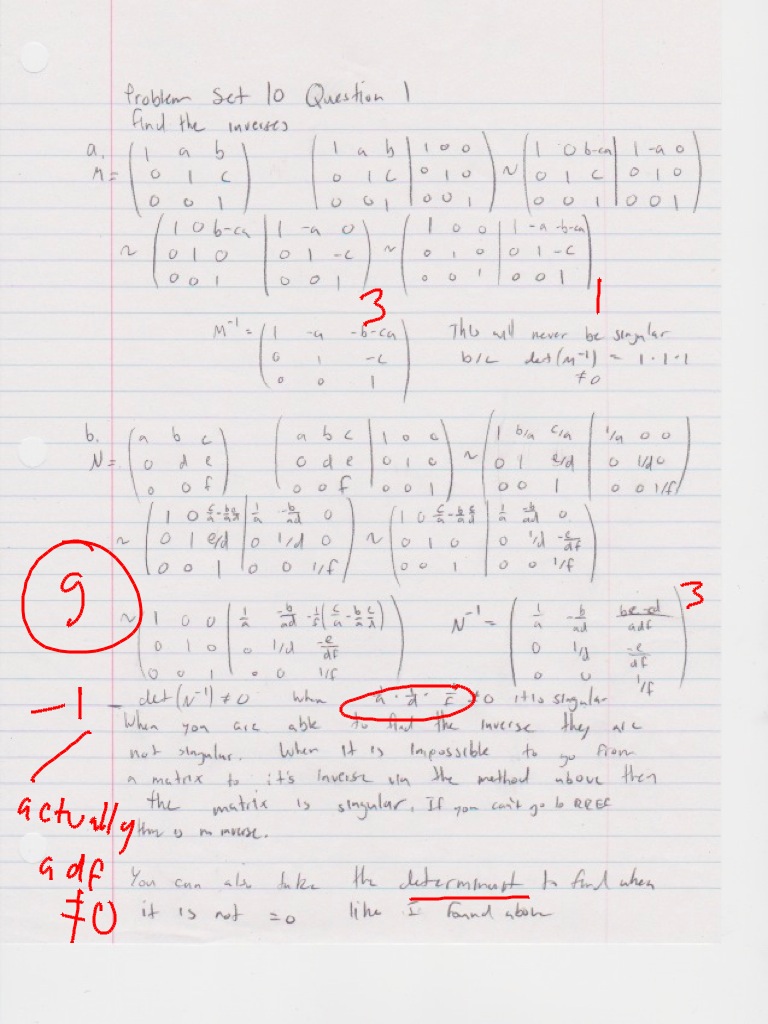 Problem Set 10 Question 1
Find the inverses
a.
M = ( 1 a b ; 0 1 c ; 0 0 1 ) ( 1 a b | 1 0 0 ; 0 1 c | 0 1 0 ; 0 0 1 | 0 0 1 ) ~ ( 1 0 b-ca | 1 -a 0 ; 0 1 c | 0 1 0 ; 0 0 1 | 0 0 1 )
~ ( 1 0 b-ca | 1 -a 0 ; 0 1 0 | 0 1 -c ; 0 0 1 | 0 0 1 ) ~ ( 1 0 0 | 1 -a -b-ca ; 0 1 0 | 0 1 -c ; 0 0 1 | 0 0 1 )
3 1
M⁻¹ = ( 1 -a -b-ca ; 0 1 -c ; 0 0 1 ) This will never be singular
b/c det(M⁻¹) = 1·1·1
≠0
b.
N = ( a b c ; 0 d e ; 0 0 f ) ( a b c | 1 0 0 ; 0 d e | 0 1 0 ; 0 0 f | 0 0 1 ) ~ ( 1 b/a c/a | 1/a 0 0 ; 0 1 e/d | 0 1/d 0 ; 0 0 1 | 0 0 1/f )
~ ( 1 0 | 1/a -b/ad 0 ; 0 1 e/d | 0 1/d 0 ; 0 0 1 | 0 0 1/f ) ~ ( 1 0 | 1/a -b/ad 0 ; 0 1 0 | 0 1/d -e/df ; 0 0 1 | 0 0 1/f )
9
~ ( 1 0 0 | 1/a -b/ad ; 0 1 0 | 0 1/d -e/df ; 0 0 1 | 0 0 1/f ) N⁻¹ = ( 1/a -b/ad ; 0 1/d -e/df ; 0 0 1/f ) 3
det(N⁻¹) ≠ 0 when 1/a · 1/d · 1/f ≠ 0 it is singular
-1
When you are able to find the inverse they are
not singular. When it is impossible to go from
a matrix to it's inverse via the method above then
the matrix is singular. If you can't go to RREF
there is no inverse.
actually
adf
≠0
You can also take the determinant to find when
it is not =0 like I found above